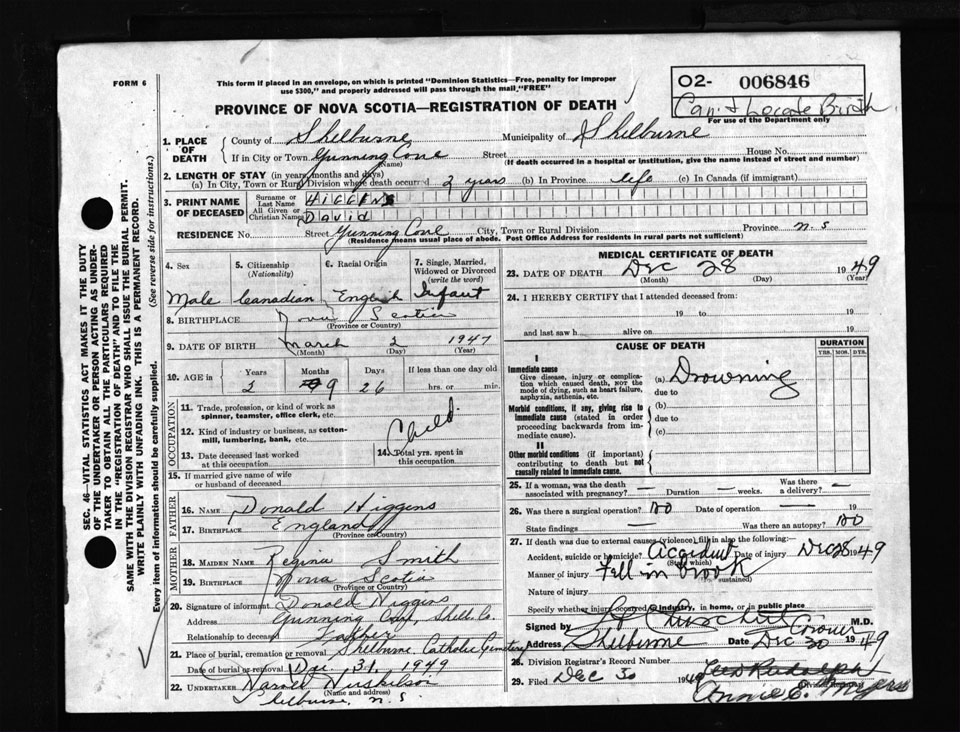 FORM 6
This form if placed in an envelope, on which is printed "Dominion Statistics—Free, penalty for improper
use $300," and properly addressed will pass through the mail "FREE"
PROVINCE OF NOVA SCOTIA—REGISTRATION OF DEATH
O2- 006846
Can't Locate Birth
For use of the Department only
SEC. 46—VITAL STATISTICS ACT MAKES IT THE DUTY
OF THE UNDERTAKER OR PERSON ACTING AS UNDER-
TAKER TO OBTAIN ALL THE PARTICULARS REQUIRED
IN THE "REGISTRATION OF DEATH" AND TO FILE THE
SAME WITH THE DIVISION REGISTRAR WHO SHALL ISSUE THE BURIAL PERMIT.
WRITE PLAINLY WITH UNFADING INK. THIS IS A PERMANENT RECORD.
Every item of information should be carefully supplied. (See reverse side for instructions.)
1. PLACE OF DEATH
County of Shelburne Municipality of Shelburne
If in City or Town Gunning Cove Street House No.
(Name) (If death occurred in a hospital or institution, give the name instead of street and number)
2. LENGTH OF STAY (in years, months and days)
(a) In City, Town or Rural Division where death occurred 2 years (b) In Province life (c) In Canada (if immigrant)
3. PRINT NAME OF DECEASED
Surname or Last Name HIGGINS
All Given or Christian Names David
RESIDENCE No. Street Gunning Cove City, Town or Rural Division Province N.S
(Residence means usual place of abode. Post Office Address for residents in rural parts not sufficient)
4. Sex
5. Citizenship (Nationality)
6. Racial Origin
7. Single, Married, Widowed or Divorced (write the word)
Male Canadian English Infant
8. BIRTHPLACE Nova Scotia
(Province or Country)
9. DATE OF BIRTH March 2 1947
(Month) (Day) (Year)
10. AGE in
Years Months Days If less than one day old
2 9 26 hrs. or min.
OCCUPATION
11. Trade, profession, or kind of work as spinner, teamster, office clerk, etc.
12. Kind of industry or business, as cotton-mill, lumbering, bank, etc.
Child
13. Date deceased last worked at this occupation
14. Total yrs. spent in this occupation
15. If married give name of wife or husband of deceased
FATHER
16. Name Donald Higgens
17. Birthplace England
(Province or Country)
MOTHER
18. MAIDEN NAME Regina Smith
19. BIRTHPLACE Nova Scotia
(Province or Country)
20. Signature of informant Donald Higgins
Address Gunning Cove, Shel. Co.
Relationship to deceased Father
21. Place of burial, cremation or removal Shelburne Catholic Cemetery
Date of burial or removal Dec. 31 1949
22. UNDERTAKER
(Name and address)
Shelburne, N. S
MEDICAL CERTIFICATE OF DEATH
23. DATE OF DEATH Dec 28 1949
(Month) (Day) (Year)
24. I HEREBY CERTIFY that I attended deceased from:
19 to 19
and last saw h alive on 19
CAUSE OF DEATH
DURATION
YRS. MOS. DYS.
I
Immediate cause
Give disease, injury or complication which caused death, NOT the mode of dying, such as heart failure, asphyxia, asthenia, etc.
(a) Drowning
due to
Morbid conditions, if any, giving rise to immediate cause (stated in order proceeding backwards from immediate cause).
(b)
due to
(c)
II
Other morbid conditions (if important) contributing to death but not causally related to immediate cause.
25. If a woman, was the death associated with pregnancy? — Duration — weeks. Was there a delivery? —
26. Was there a surgical operation? No Date of operation — 19
State findings — Was there an autopsy? No
27. If death was due to external causes (violence) fill in also the following:
Accident, suicide or homicide? Accident Date of injury Dec 28 1949
(State which)
Manner of injury Fell in brook
(How sustained)
Nature of injury
Specify whether injury occurred in industry, in home, or in public place
Signed by Churchill M.D.
Coroner
Address Shelburne Date Dec 30 1949
28. Division Registrar's Record Number
29. Filed Dec 30 1949
Annie E.
Division Registrar